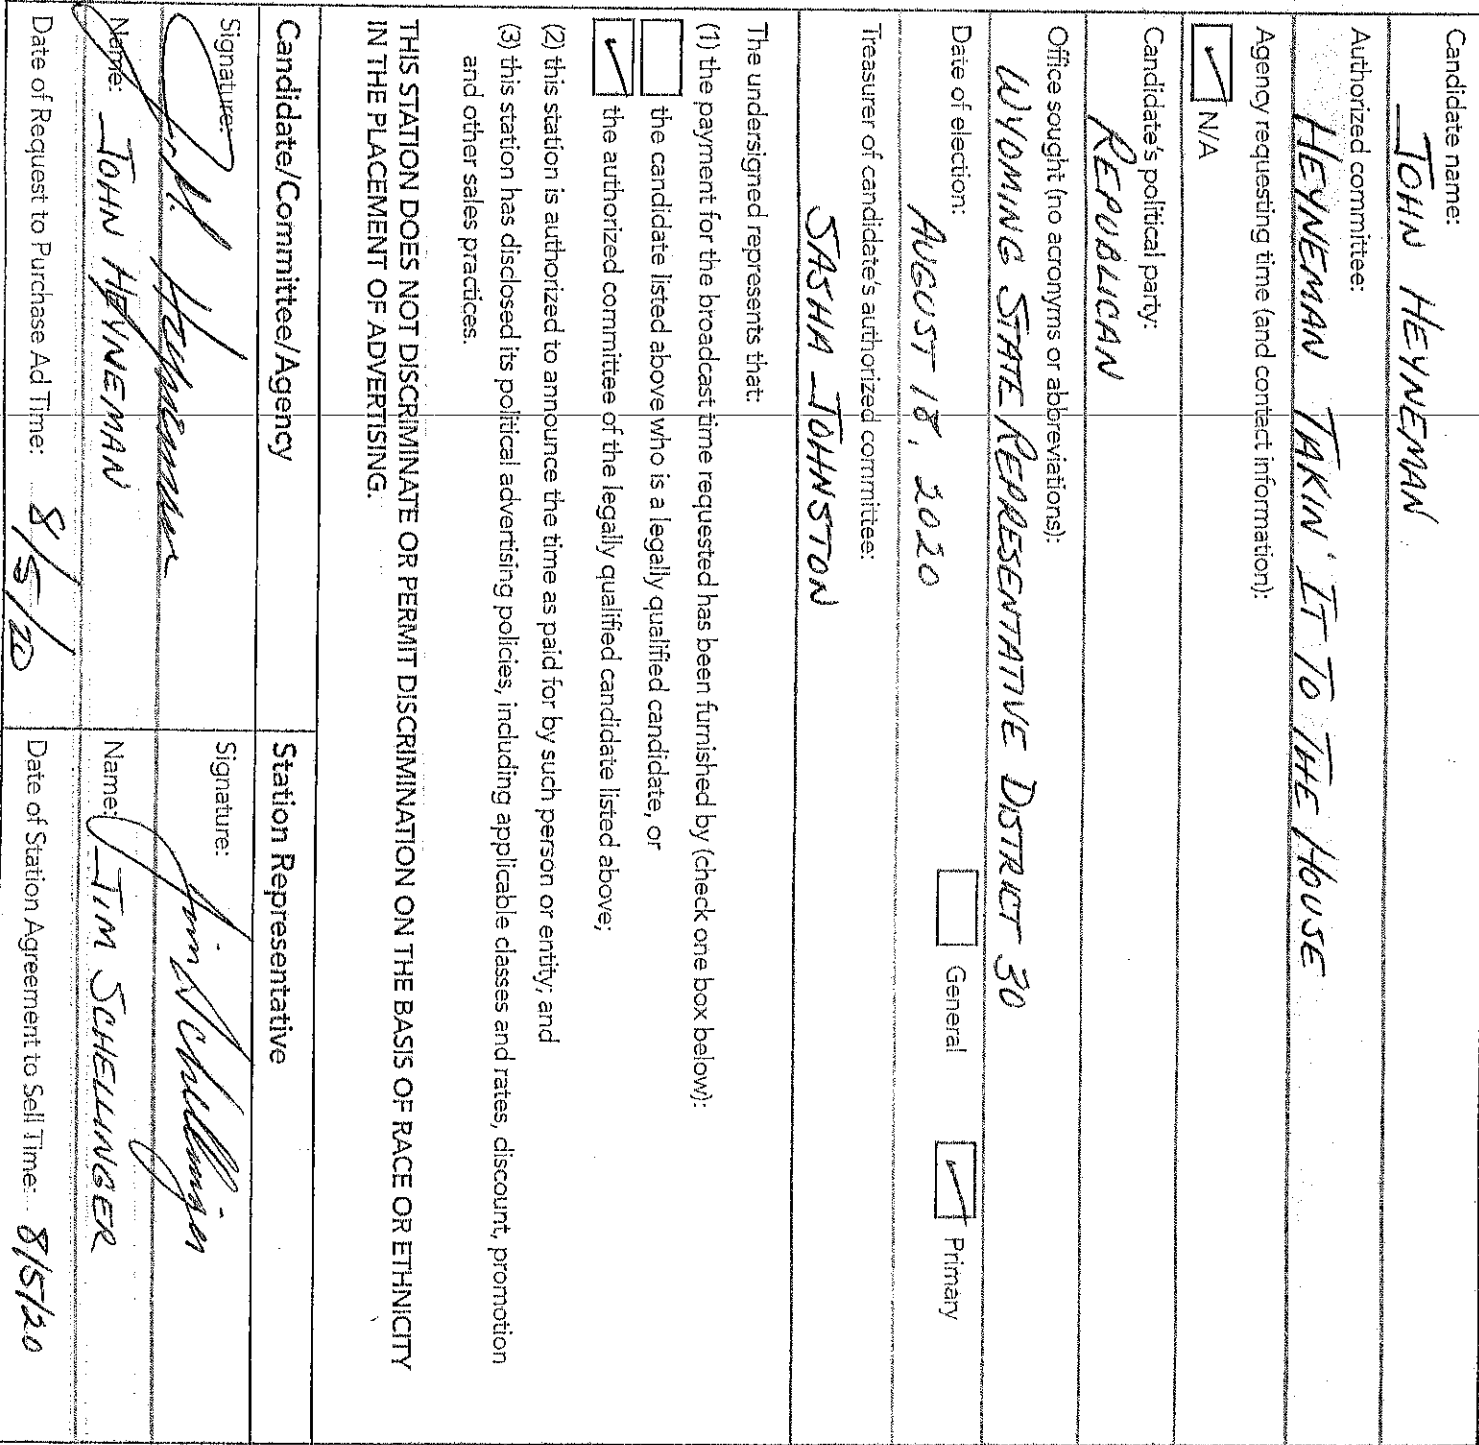 Candidate name:
JOHN HEYNEMAN
Authorized committee:
HEYNEMAN TAKIN' IT TO THE HOUSE
Agency requesting time (and contact information):
N/A
Candidate's political party:
REPUBLICAN
Office sought (no acronyms or abbreviations):
WYOMING STATE REPRESENTATIVE DISTRICT 30
Date of election:
AUGUST 18, 2020 General Primary
Treasurer of candidate's authorized committee:
SASHA JOHNSTON
The undersigned represents that:
(1) the payment for the broadcast time requested has been furnished by (check one box below):
the candidate listed above who is a legally qualified candidate, or
the authorized committee of the legally qualified candidate listed above;
(2) this station is authorized to announce the time as paid for by such person or entity; and
(3) this station has disclosed its political advertising policies, including applicable classes and rates, discount, promotion
and other sales practices.
THIS STATION DOES NOT DISCRIMINATE OR PERMIT DISCRIMINATION ON THE BASIS OF RACE OR ETHNICITY
IN THE PLACEMENT OF ADVERTISING.
Candidate/Committee/Agency Station Representative
Signature: John Heyneman Signature: Jim Schellinger
Name: JOHN HEYNEMAN Name: JIM SCHELLINGER
Date of Request to Purchase Ad Time: 8/5/20 Date of Station Agreement to Sell Time: 8/5/20